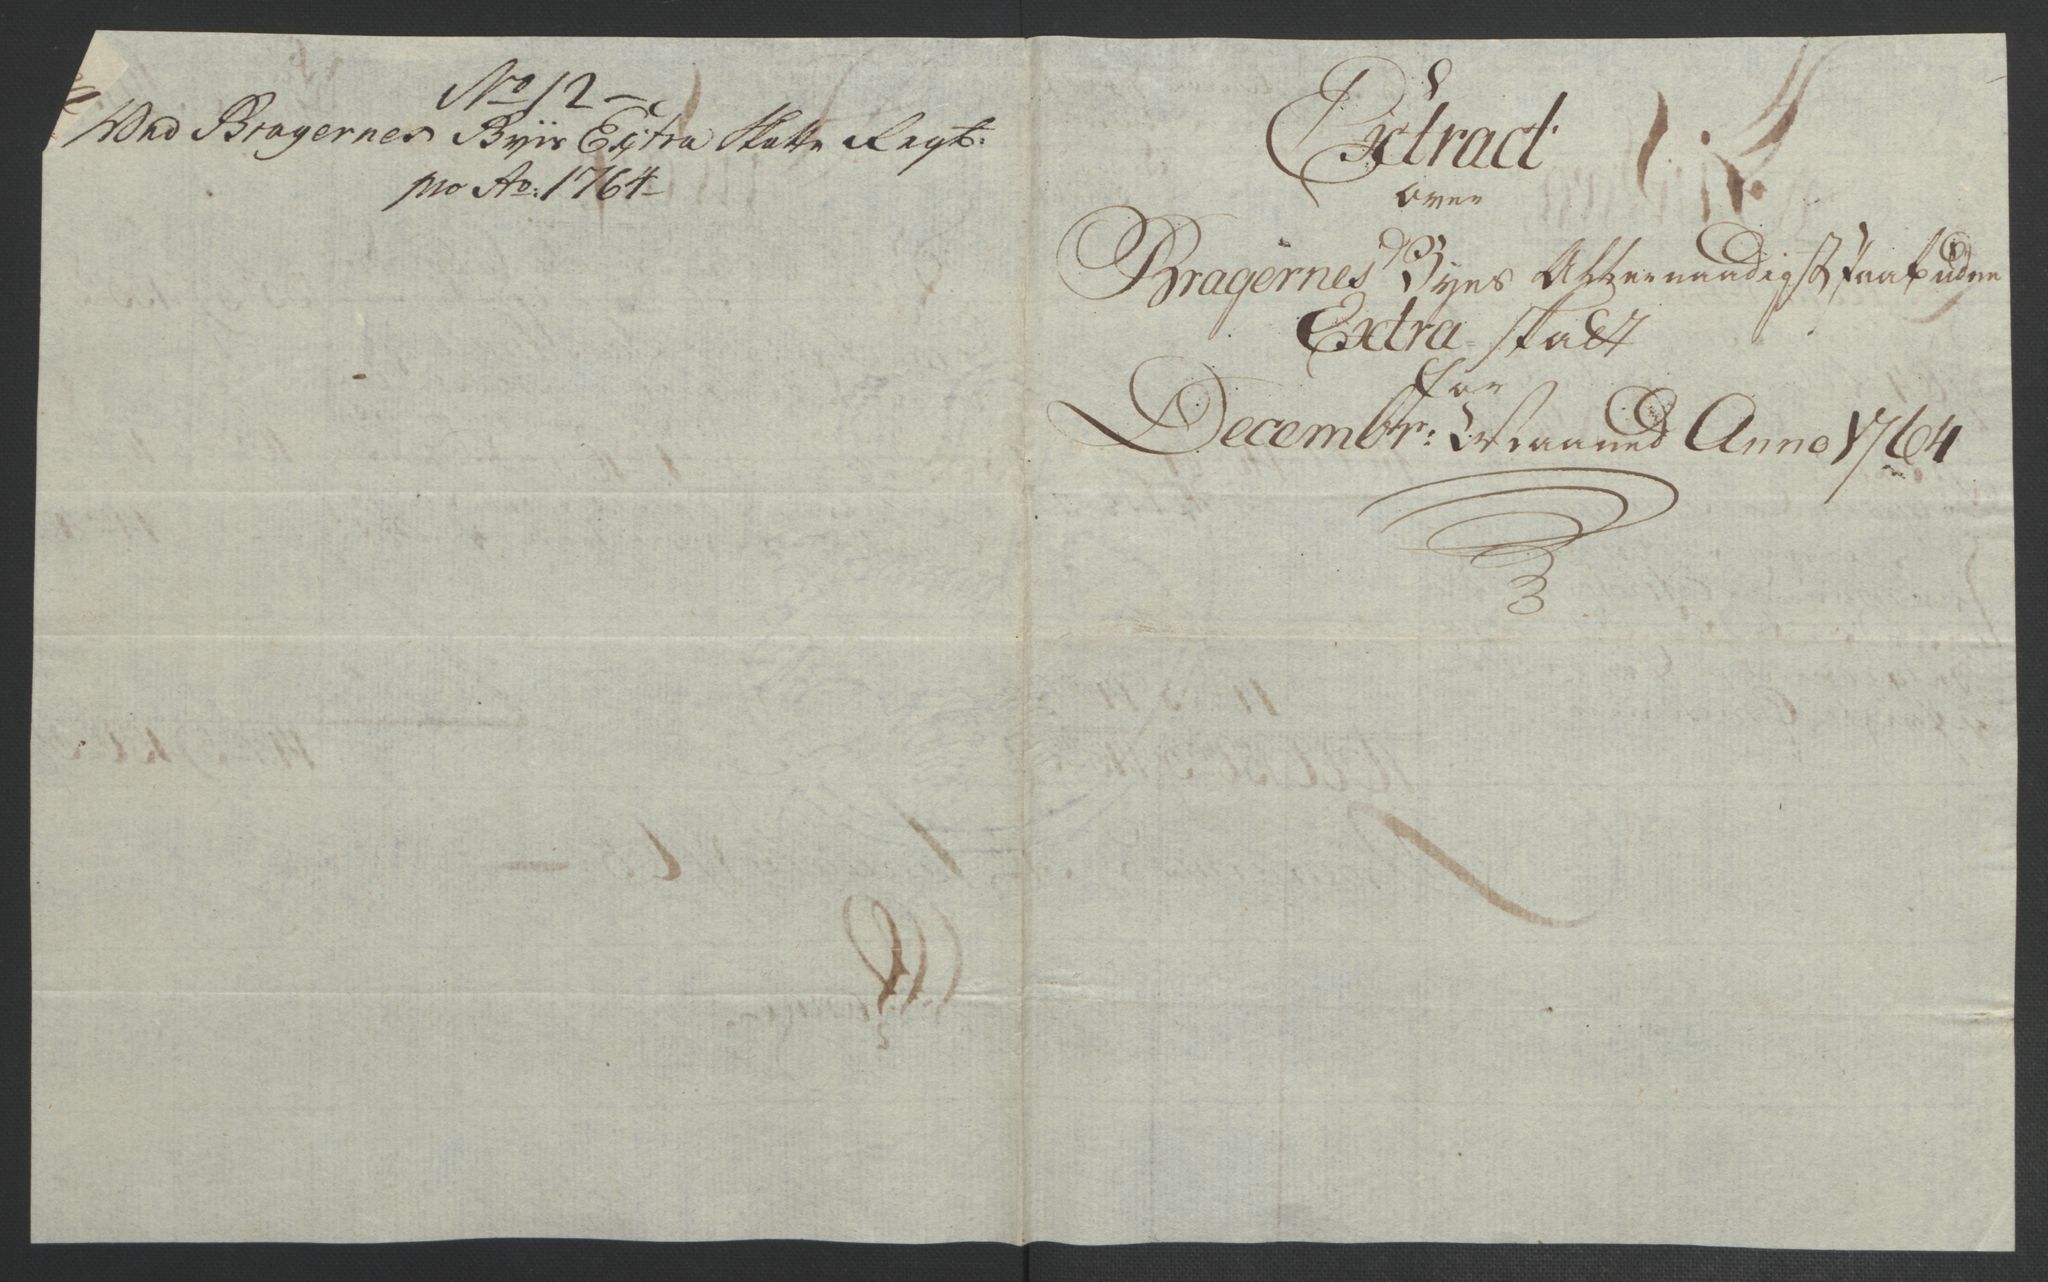 No 12
Ved Bragernes Byis Extra Skatte Regt:
pro Ao: 1764
Extract
over
Bragernes Byes Allernaadigst paabudne
Extra skatt
for
Decembr: Maaned Anno 1764